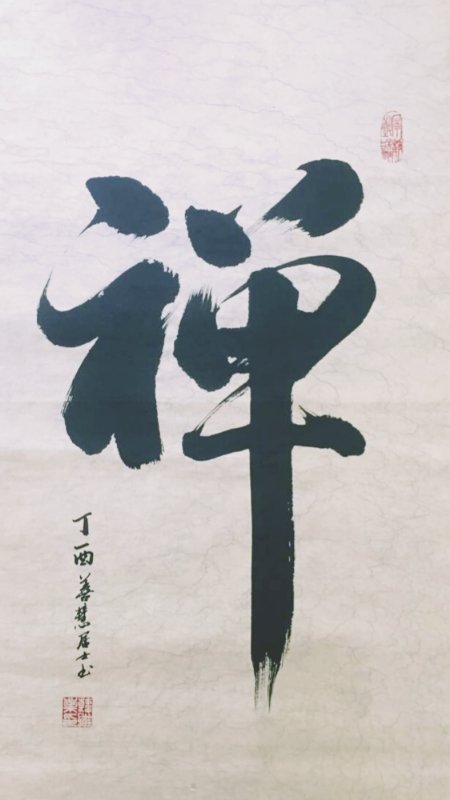 禅
丁酉善慧居士书